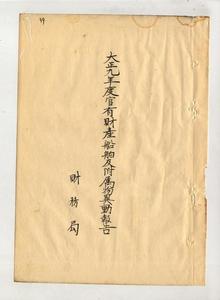 大正九年度官有財産船舶及附属物異動報告
財務局